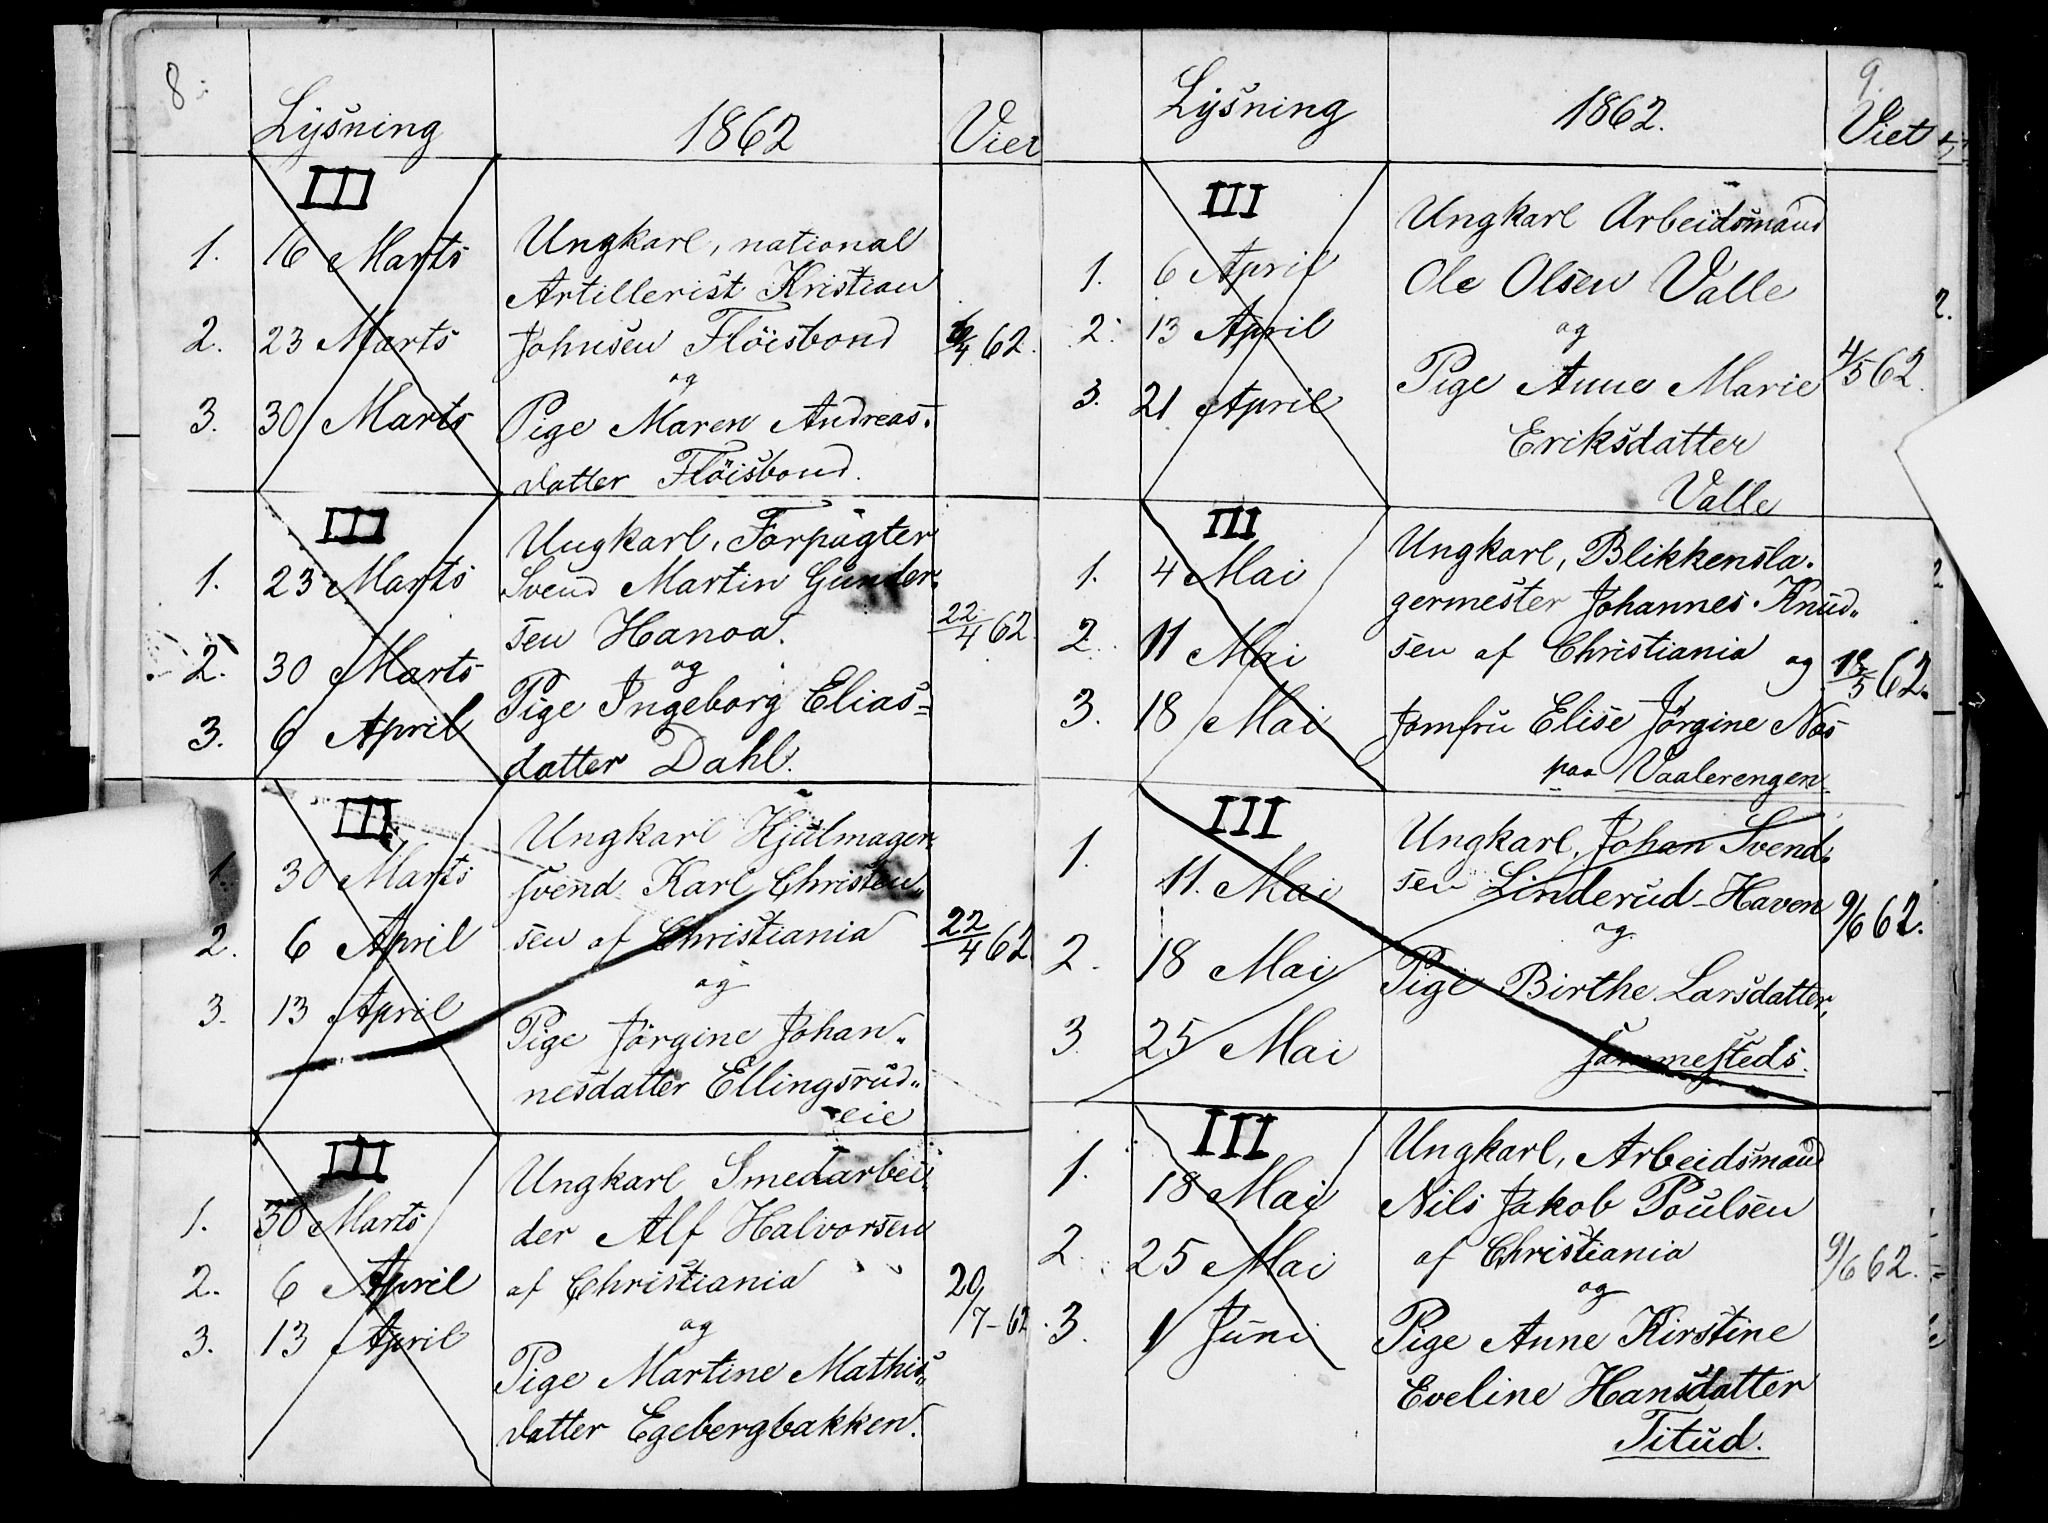 8
Lysning 1862 Viet
III
1. 16 Marts
2. 23 Marts
3. 30 Marts
Ungkarl, national
Artillerist Kristian
Johnsen Flöisbond
og
Pige Maren Andreas-
datter Flöisbond.
/4 62.
III
1. 23 Marts
2. 30 Marts
3. 6 April
Ungkarl, Forpagter
Svend Martin Gunder-
sen Hanoa.
og
Pige Ingeborg Elias-
datter Dahl.
22/4 62.
III
1. 30 Marts
2. 6 April
3. 13 April
Ungkarl Hjulmager-
svend Karl Christen-
sen af Christiania
og
Pige Jörgine Johan-
nesdatter Ellingsrud-
eie
22/4 62.
III
1. 30 Marts
2. 6 April
3. 13 April
Ungkarl Smedarbei-
der Alf Halvorsen
af Christiania
og
Pige Martine Mathis-
datter Egebergbakken.
20/7-62
9.
Lysning 1862. Viet
III
1. 6 April
2. 13 April
3. 21 April
Ungkarl Arbeidsmand
Ole Olsen Valle
og
Pige Anne Marie
Eriksdatter
Valle
4/5 62.
III
1. 4 Mai
2. 11 Mai
3. 18 Mai
Ungkarl, Blikkensla-
germester Johannes Knud-
sen af Christiania og
Jomfru Elise Jörgine Næs
paa Vaalerengen.
18/5 62.
III
1. 11. Mai
2. 18 Mai
3. 25 Mai
Ungkarl, Johan Svend-
sen Linderud-Haven
og
Pige Birthe Larsdatter,
sammesteds.
9/6 62.
III
1. 18 Mai
2. 25 Mai
3. 1 Juni
Ungkarl, Arbeidsmand
Nils Jakob Poulsen
af Christiania
og
Pige Anne Kirstine
Eveline Hansdatter
Titud.
9/6 62.